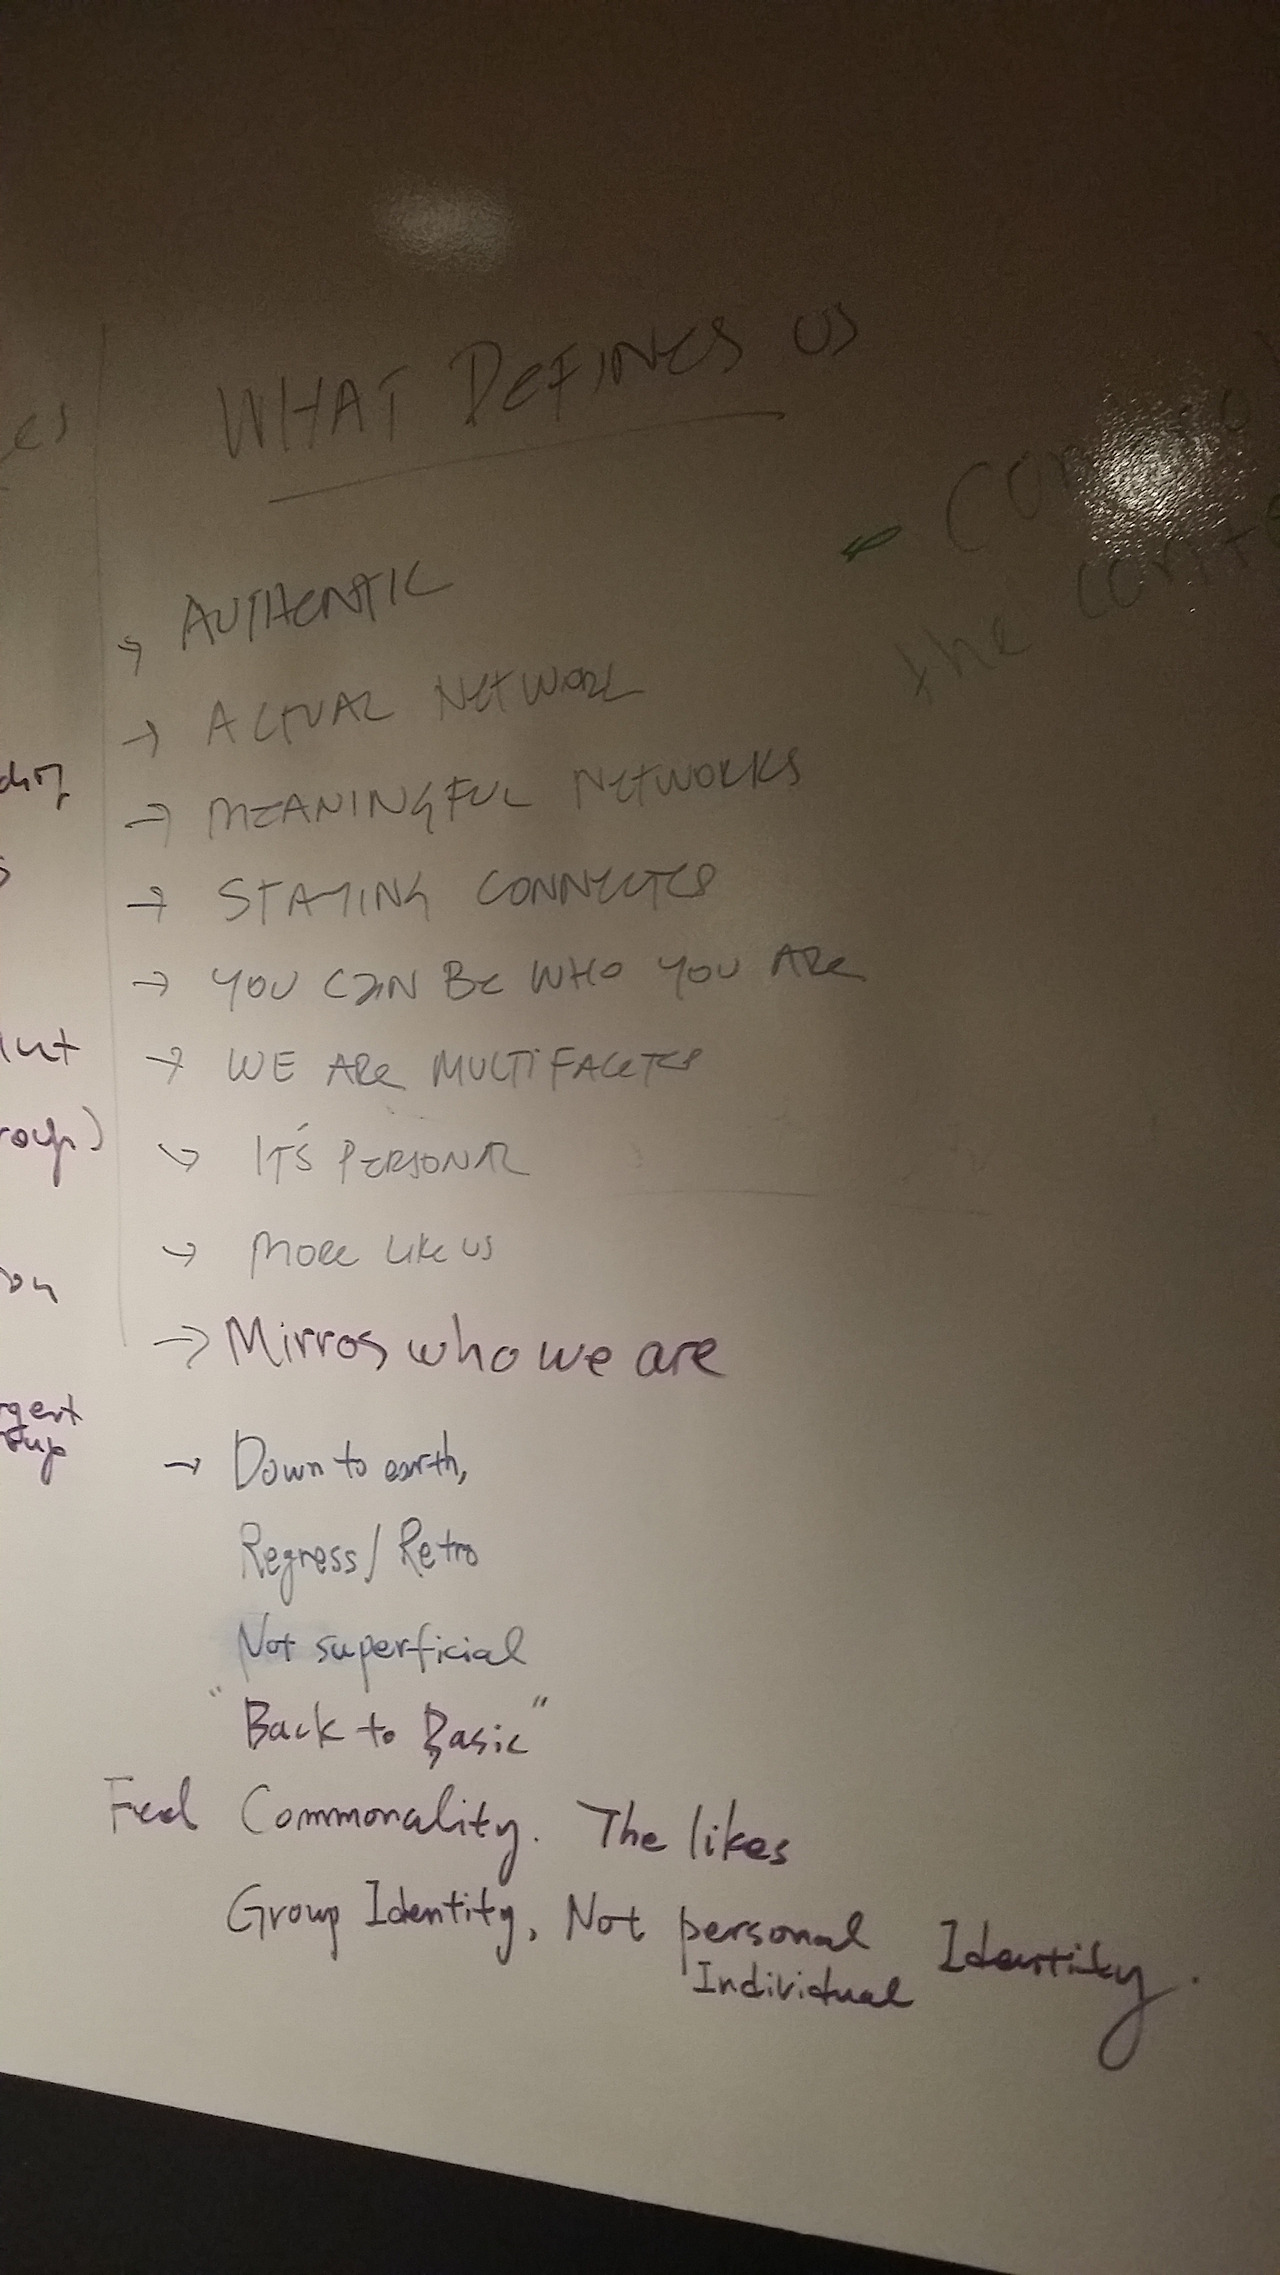 WHAT DEFINES US
→ AUTHENTIC
→ ACTUAL NETWORK
→ MEANINGFUL NETWORKS
→ STAYING CONNECTED
→ YOU CAN BE WHO YOU ARE
→ WE ARE MULTIFACETED
→ IT'S PERSONAL
→ MORE LIKE US
→ Mirros who we are
→ Down to earth,
Regress / Retro
Not superficial
"Back to Basic"
Feel Commonality. The likes
Group Identity, Not personal Identity.
Individual
the